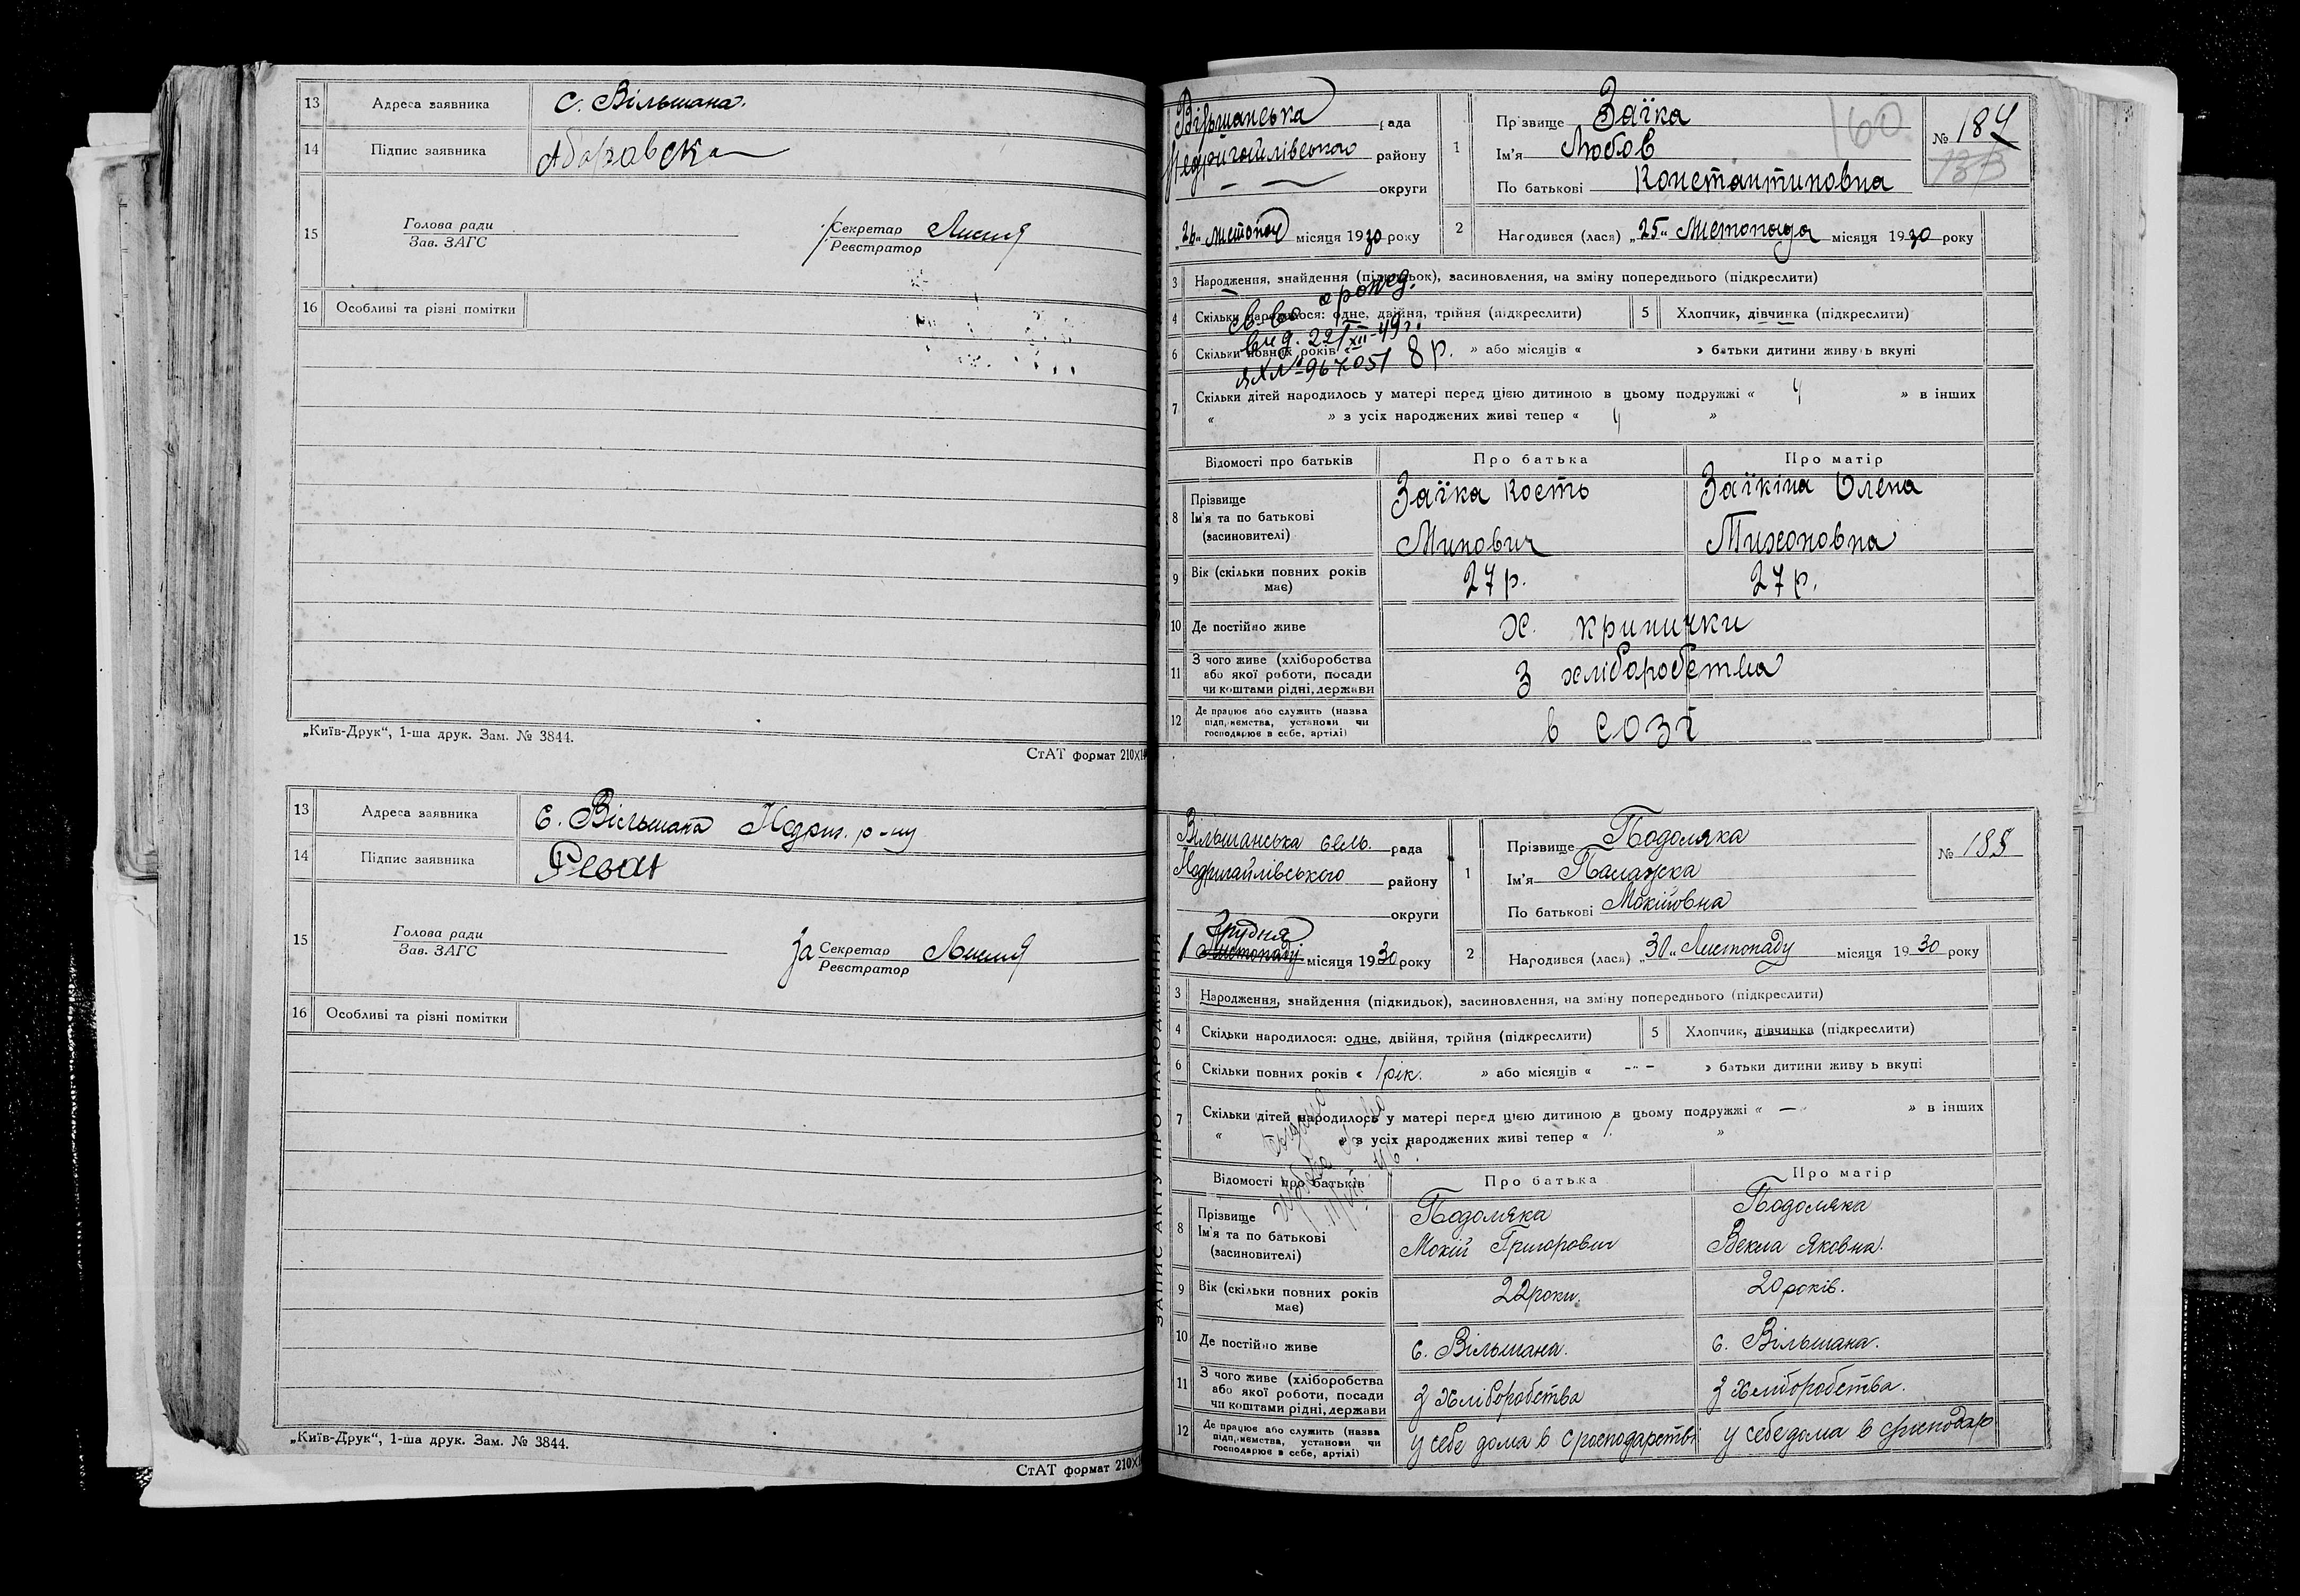 13 Адреса заявника с. Вільшана.
14 Підпис заявника
15 Голова ради
Зав. ЗАГС
Секретар
Реєстратор
16 Особливі та різні помітки
„Київ-Друк“, 1-ша друк. Зам. № 3844.
СтАТ формат 210X1
13 Адреса заявника с. Вільшана Недриг. р-ну
14 Підпис заявника
15 Голова ради
Зав. ЗАГС
за Секретар
Реєстратор
16 Особливі та різні помітки
„Київ-Друк“, 1-ша друк. Зам. № 3844.
СтАТ формат 210X1
ЗАПИС АКТУ ПРО НАРОДЖЕННЯ
Вільшанська рада
Недригайлівського району
округи
„26„ листопад місяця 1930 року
1 Прізвище Заїка
Ім'я Любов
По батькові Константиновна
160
№ 184
2 Народився (лася) „25„ Листопада місяця 1930 року
3 Народження, знайдення (підкидьок), засиновлення, на зміну попереднього (підкреслити)
4 Скільки народилося: одне, двійня, трійня (підкреслити) 5 Хлопчик, дівчинка (підкреслити)
св-во о рожд.
выд. 22/XII-49 г.
ЯХ № 967051
6 Скільки повних років « 8 р. » або місяців « » батьки дитини живуть вкупі
7 Скільки дітей народилось у матері перед цією дитиною в цьому подружжі « 4 » в інших
« » з усіх народжених живі тепер « 4 »
Відомості про батьків Про батька Про матір
8 Прізвище
Ім'я та по батькові
(засиновителі)
Заїка Кость
Минович
Заїкіна Олена
Тихоновна
9 Вік (скільки повних років має) 27 р. 27 р.
10 Де постійно живе х. кринички
11 З чого живе (хліборобства
або якої роботи, посади
чи коштами рідні, держави
З хліборобства
12 Де працює або служить (назва
підприємства, установи чи
господарює в себе, артілі)
в созі
Вільшанська сель. рада
Недригайлівського району
округи
Грудня
1 Листопаду місяця 1930 року
1 Прізвище Подоляка
Ім'я Палажка
По батькові Мокіївна
№ 185
2 Народився (лася) „30„ Листопаду місяця 1930 року
3 Народження, знайдення (підкидьок), засиновлення, на зміну попереднього (підкреслити)
4 Скільки народилося: одне, двійня, трійня (підкреслити) 5 Хлопчик, дівчинка (підкреслити)
6 Скільки повних років « 1 рік. » або місяців « - - - » батьки дитини живуть вкупі
7 Скільки дітей народилось у матері перед цією дитиною в цьому подружжі « — » в інших
« » з усіх народжених живі тепер « 1. »
Відомості про батьків Про батька Про матір
8 Прізвище
Ім'я та по батькові
(засиновителі)
Подоляка
Мокій Григорович
Подоляка
Векла Яковна.
9 Вік (скільки повних років має) 22 роки. 20 років.
10 Де постійно живе с. Вільшана. с. Вільшана.
11 З чого живе (хліборобства
або якої роботи, посади
чи коштами рідні, держави
З Хліборобства З Хліборобства.
12 Де працює або служить (назва
підприємства, установи чи
господарює в себе, артілі)
у себе дома в господарстві у себе дома в господар